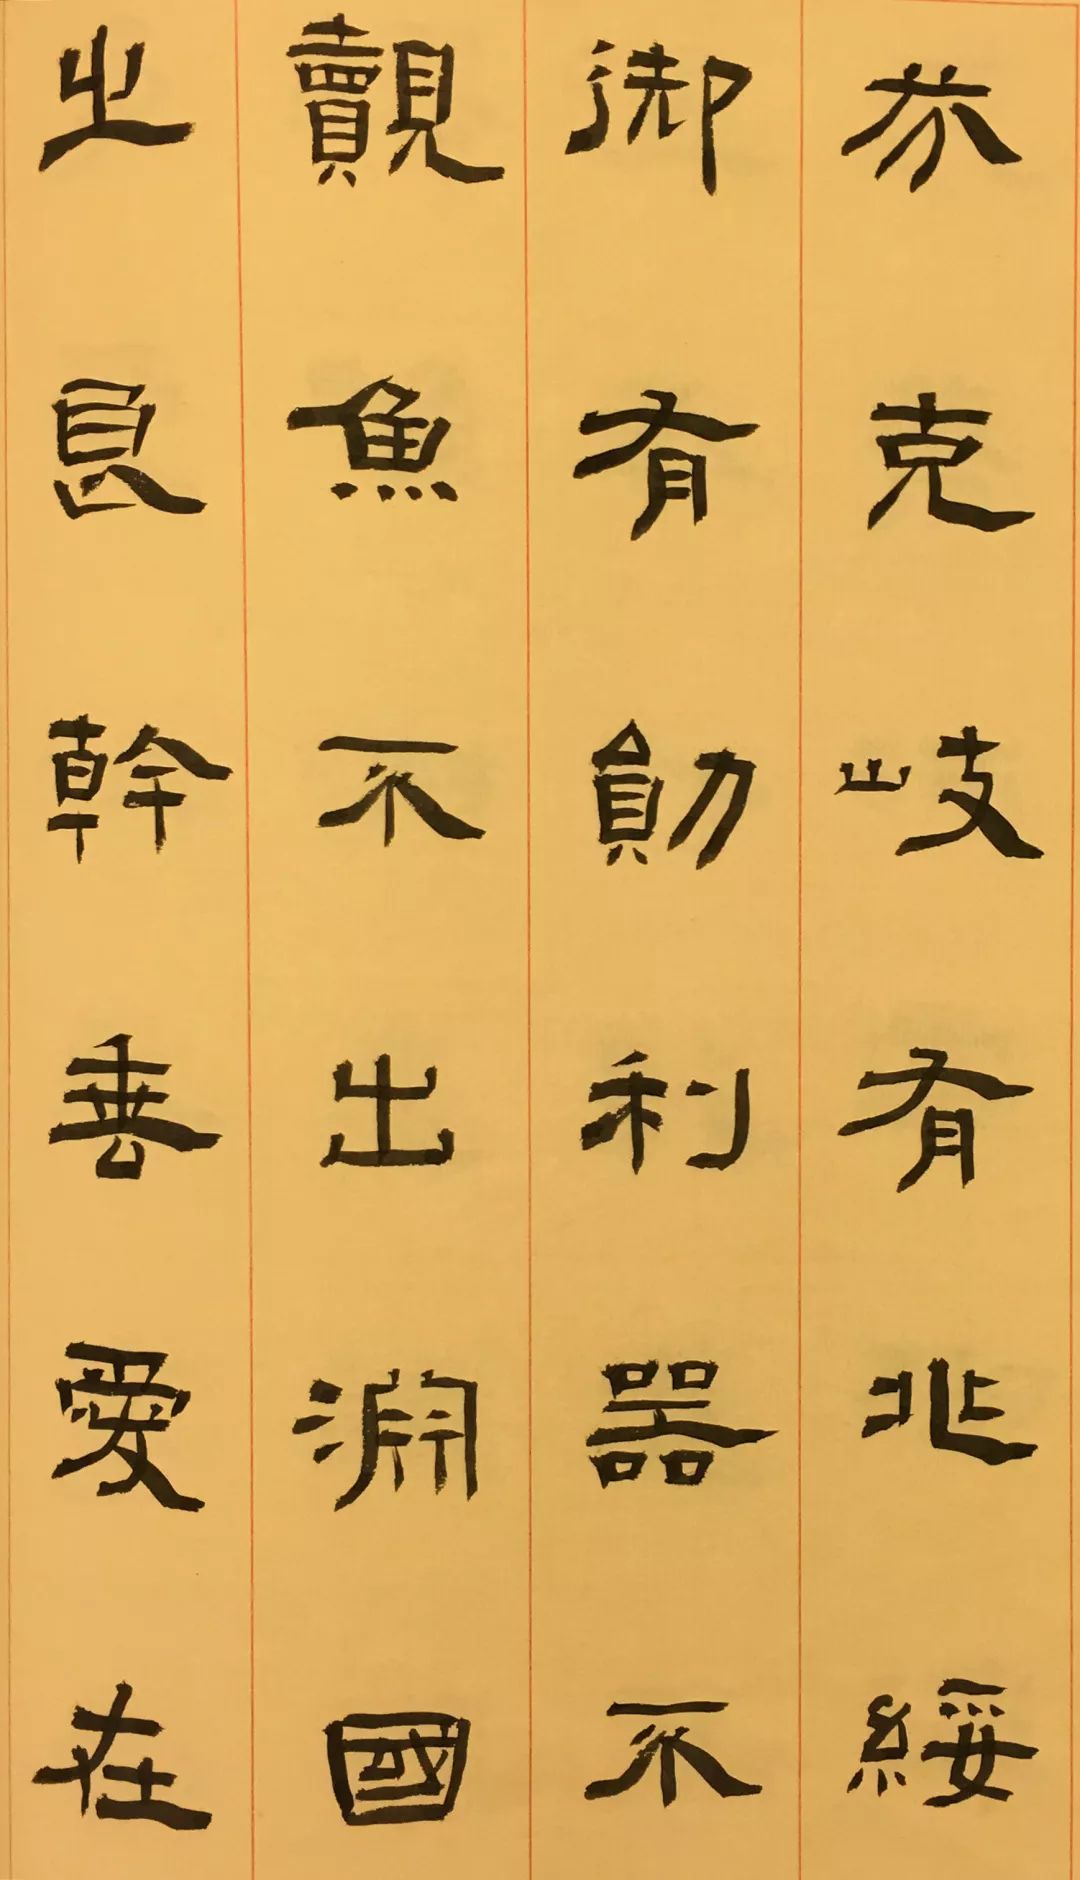 芬克岐有兆綏
御有勛利器不
覿魚不出淵國
之良幹垂愛在